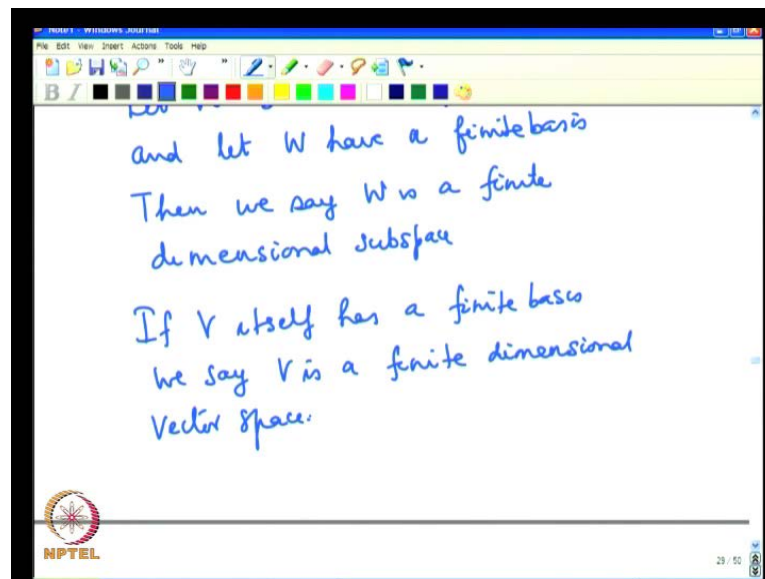 Note1 - Windows Journal
File Edit View Insert Actions Tools Help
B I
and let W have a finite basis
Then we say W is a finite
dimensional subspace
If V itself has a finite basis
we say V is a finite dimensional
vector space.
NPTEL
29 / 50